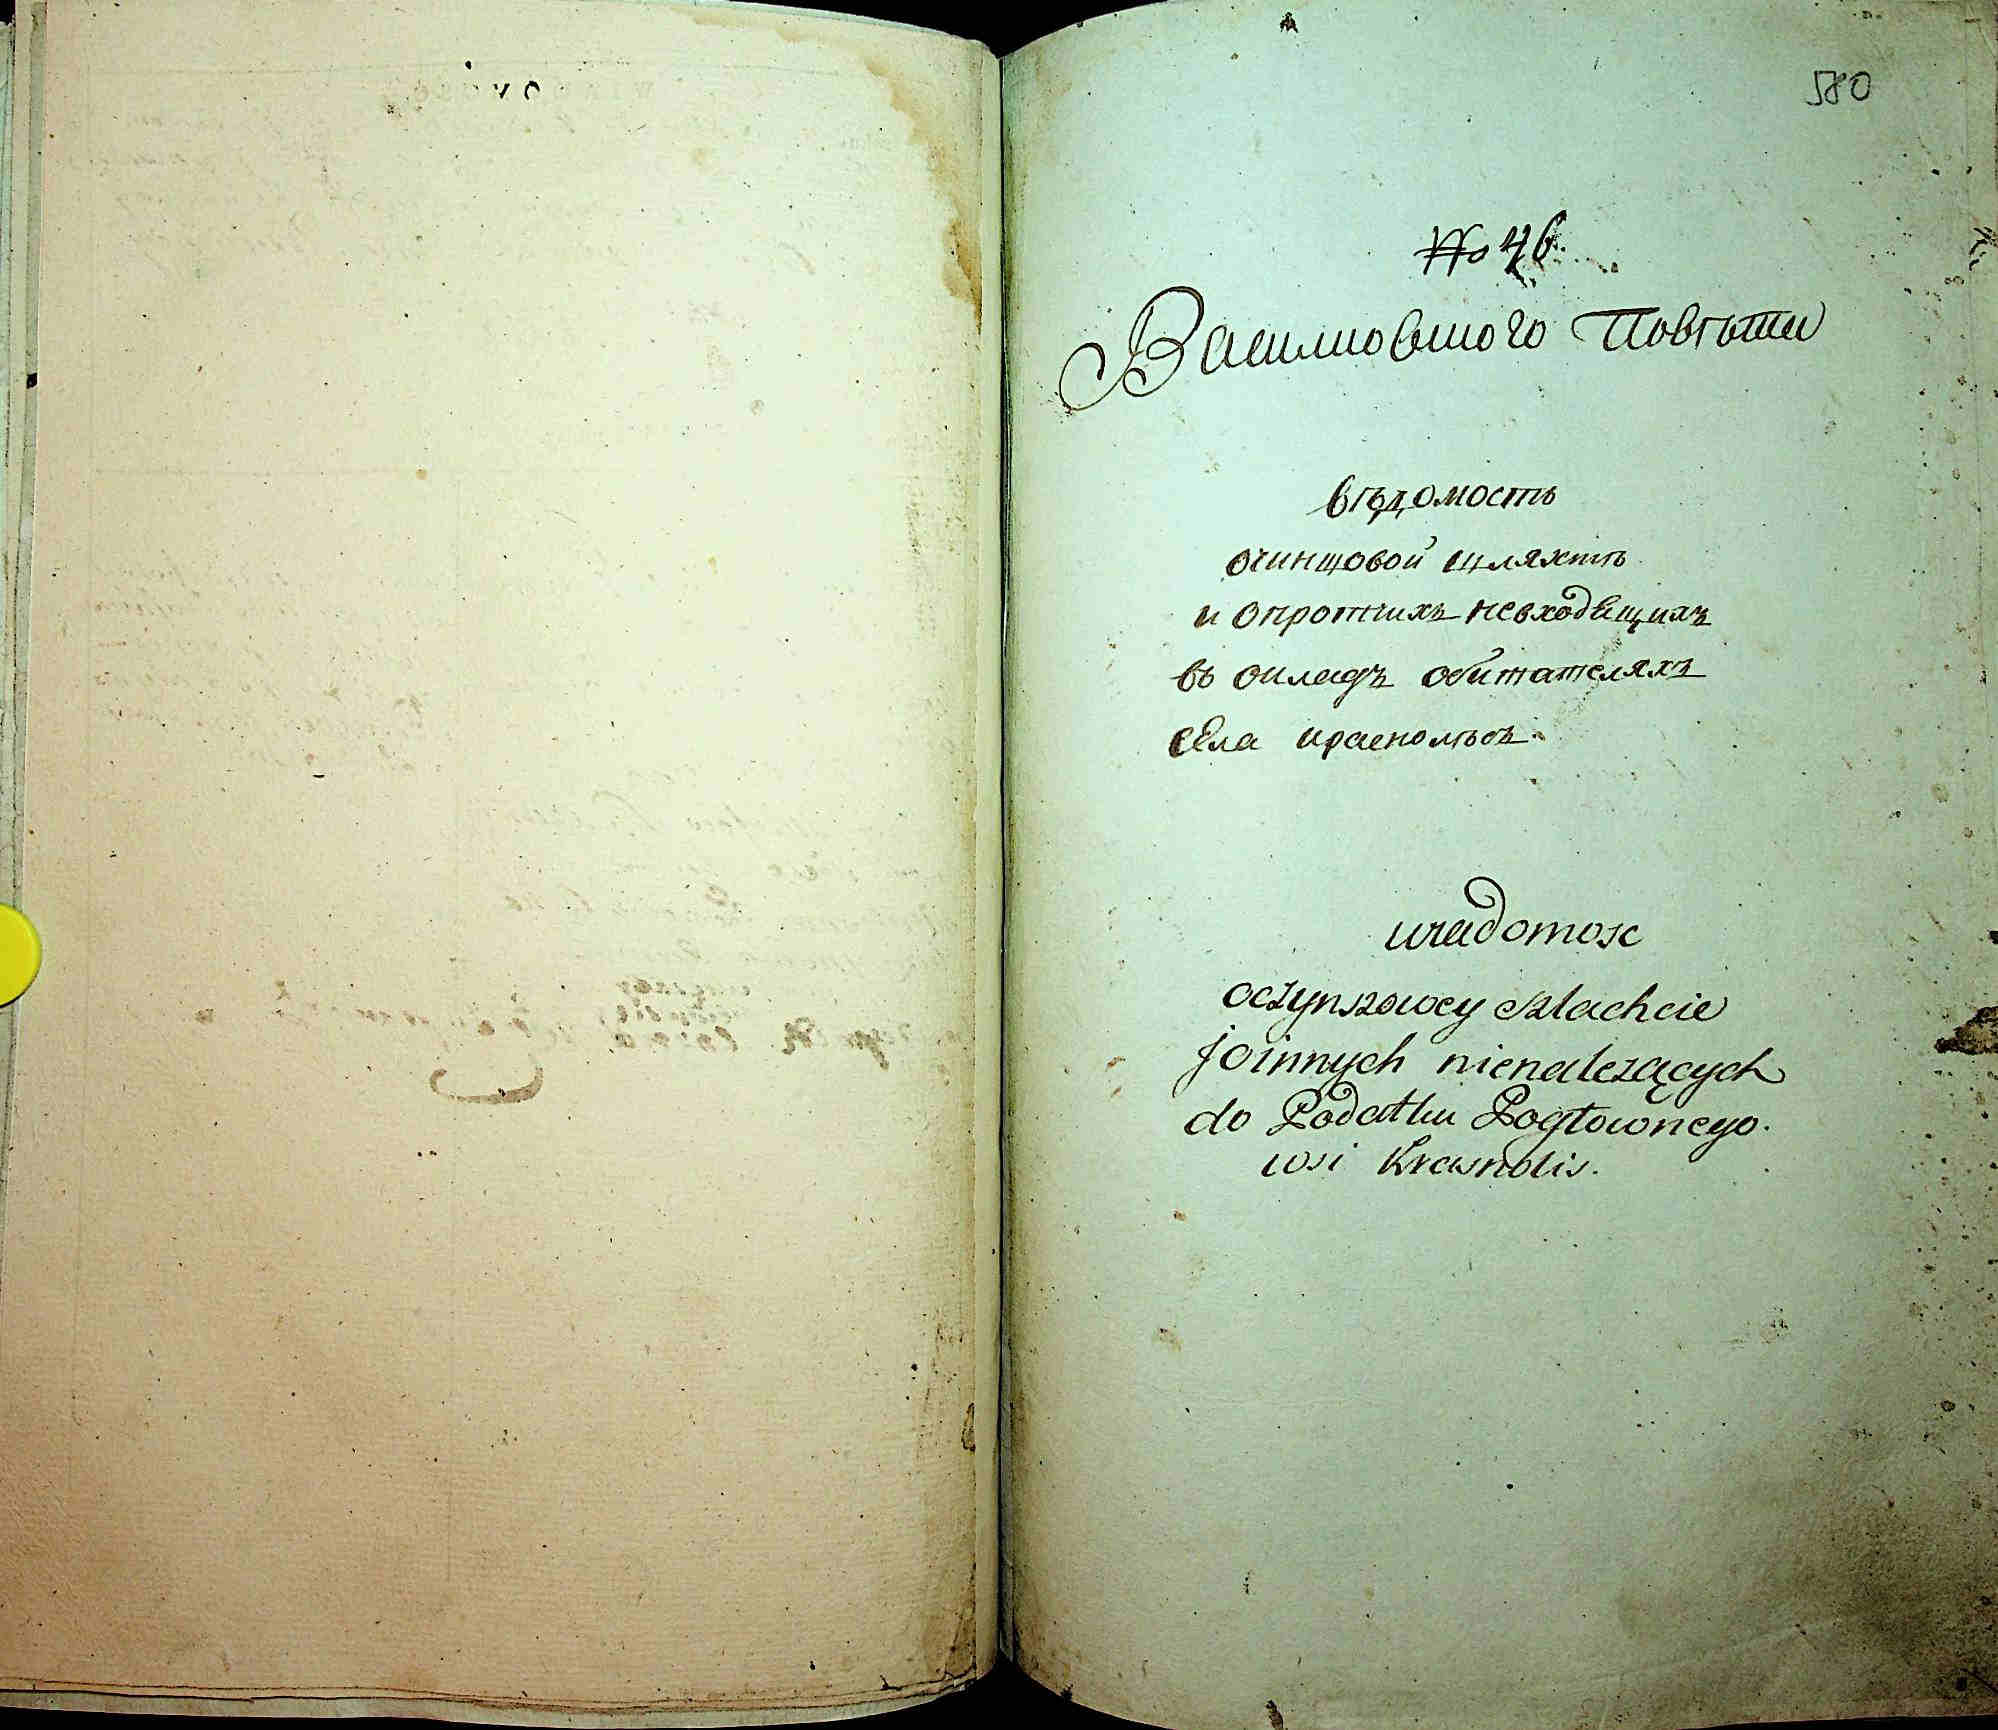 580
No 46.
Василковского Повѣта
вѣдомость
очиншовой шляхтѣ
и опротчихъ невходящихъ
въ окладъ обитателяхъ
села краснолѣсъ
wiadomosc
oczynszowey szlachcie
j oinnych nienależących
do Podatku Pogłownego.
wsi Krasnolis.